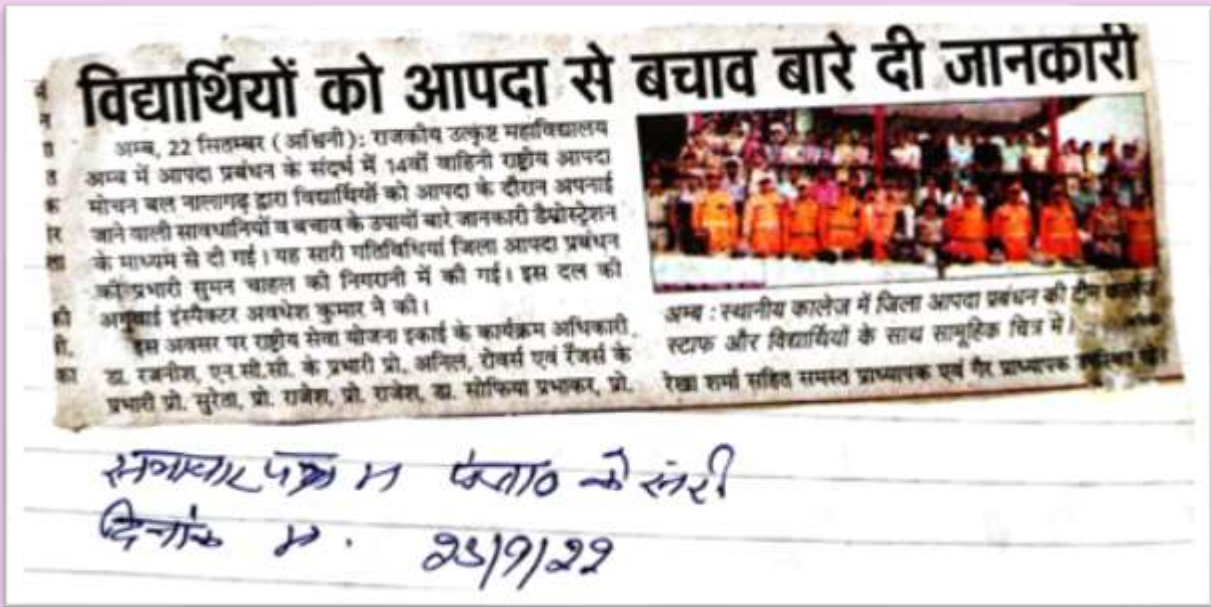 विद्यार्थियों को आपदा से बचाव बारे दी जानकारी
अम्ब, 22 सितम्बर (अश्विनी): राजकीय उत्कृष्ट महाविद्यालय
अम्ब में आपदा प्रबंधन के संदर्भ में 14वीं वाहिनी राष्ट्रीय आपदा
मोचन बल नालागढ़ द्वारा विद्यार्थियों को आपदा के दौरान अपनाई
जाने वाली सावधानियों व बचाव के उपायों बारे जानकारी डैमोस्ट्रेशन
के माध्यम से दी गई। यह सारी गतिविधियां जिला आपदा प्रबंधन
की प्रभारी सुमन चाहल की निगरानी में की गई। इस दल की
अगुवाई इंस्पैक्टर अवधेश कुमार ने की।
इस अवसर पर राष्ट्रीय सेवा योजना इकाई के कार्यक्रम अधिकारी
डा. रजनीश, एन.सी.सी. के प्रभारी प्रो. अनिल, रोवर्स एवं रेंजर्स के
प्रभारी प्रो. सुरेता, प्रो. राजेश, प्रो. राजेश, डा. सोफिया प्रभाकर, प्रो.
अम्ब : स्थानीय कालेज में जिला आपदा प्रबंधन की टीम कालेज
स्टाफ और विद्यार्थियों के साथ सामूहिक चित्र में।
रेखा शर्मा सहित समस्त प्राध्यापक एवं गैर प्राध्यापक
समाचार पत्र म पंजाब केसरी
दिनांक म. 23/9/22